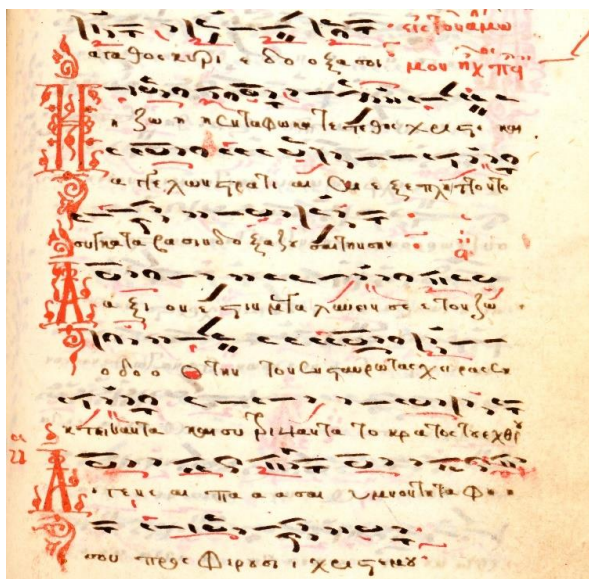 αγαθος κυρι ε δο ο ξα σοι εις τον αμω
μου ηχ πλ
Η η ζω η η εν τα φω κα τε τεθης χριστε και
α αγγελων στρατι αι ε ξε πληττοντο
συγκατα βα σιν δο ξαζου σαι την σην
Α α ξι ον ε στιν μεγα λυνειν σε ε τον ζω
ο δο ο την τον εν σταυρω τας χειρας εκ
κ τειναντα και συ τριψαντα το κρατος του εχθρου
Α γενε αι πα α α σαι υμνον τη ταφη η
σου προς φερουσι ι χριστε μου